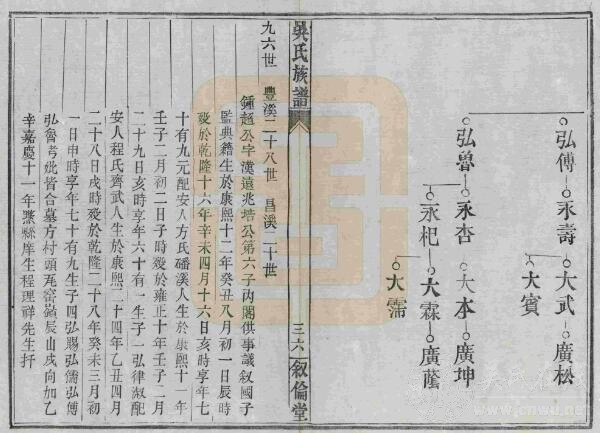 弘傅 永壽 大武 廣松
大賓
弘魯 永杏 大本 廣坤
永杞 大霖 廣蔭
大霈
吳氏族譜
三六
叙倫堂
九六世 豐溪二十八世 昌溪二十世
鍾超公字漢遠兆培公第六子內閣供事議叙國子
監典籍生於康熙十二年癸丑八月初一日辰時
歿於乾隆十六年辛未四月十六日亥時享年七
十有九元配安人方氏磻溪人生於康熙十一年
壬子二月初二日子時歿於雍正十年壬子二月
二十九日亥時享年六十有一生子一弘律㴠配
安人程氏齊武人生於康熙二十四年乙丑四月
二十八日戌時歿於乾隆二十八年癸未三月初
一日申時享年七十有九生子四弘賜弘儒弘傅
弘魯考妣皆合墓方村頭瓦窰嶺辰山戌向加乙
辛嘉慶十一年黟縣庠生程理祥先生扦